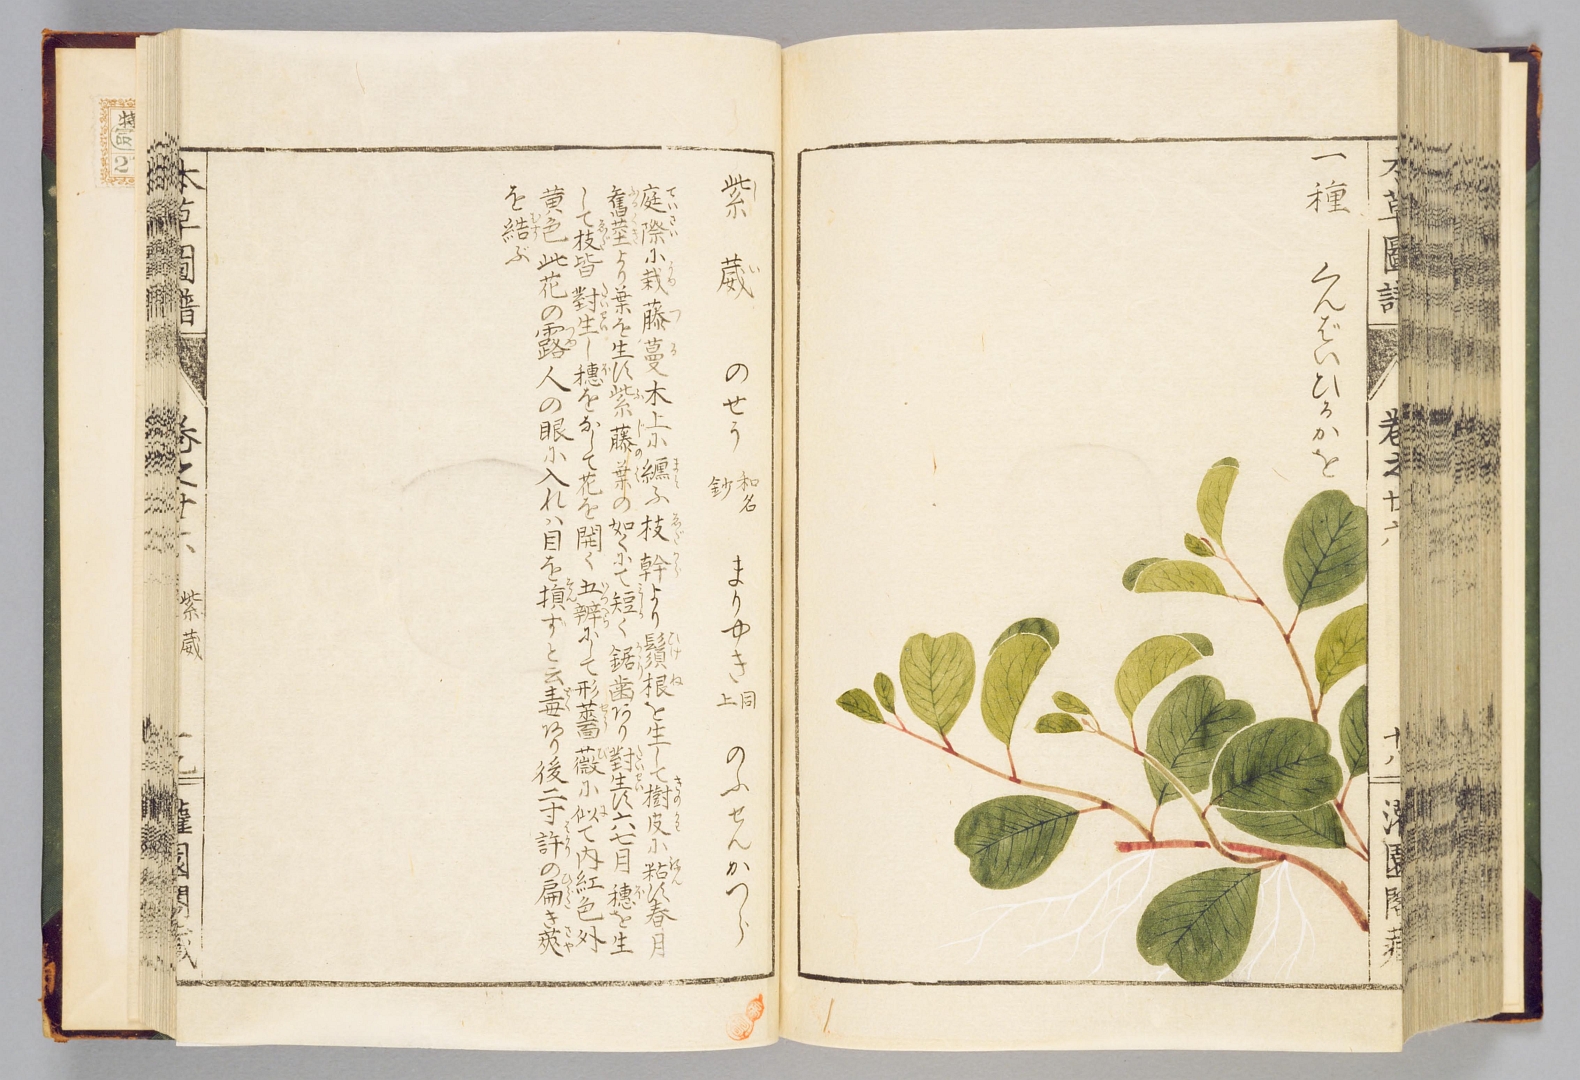 本草圖譜 卷之廿六 十八 灌園閣藏
一種 ぐんばいひるがを
紫葳 のせう 和名鈔 まかやき 同上 のふせんかつら
庭際小栽藤蔓木上小纏ふ枝幹より鬚根を生して樹皮小粘ス春月
舊莖より葉を生ス紫藤葉の如くにて短く鋸歯あり對生ス六七月穗を生
して枝皆對生し穗をなして花を開く五辨にして形薔薇小似て内紅色外
黄色此花の露人の眼小入れハ目を損すと云毒あり後二寸許の扁き莢
を結ぶ
本草圖譜 卷之廿六 紫葳 十九 灌園閣藏
特
2